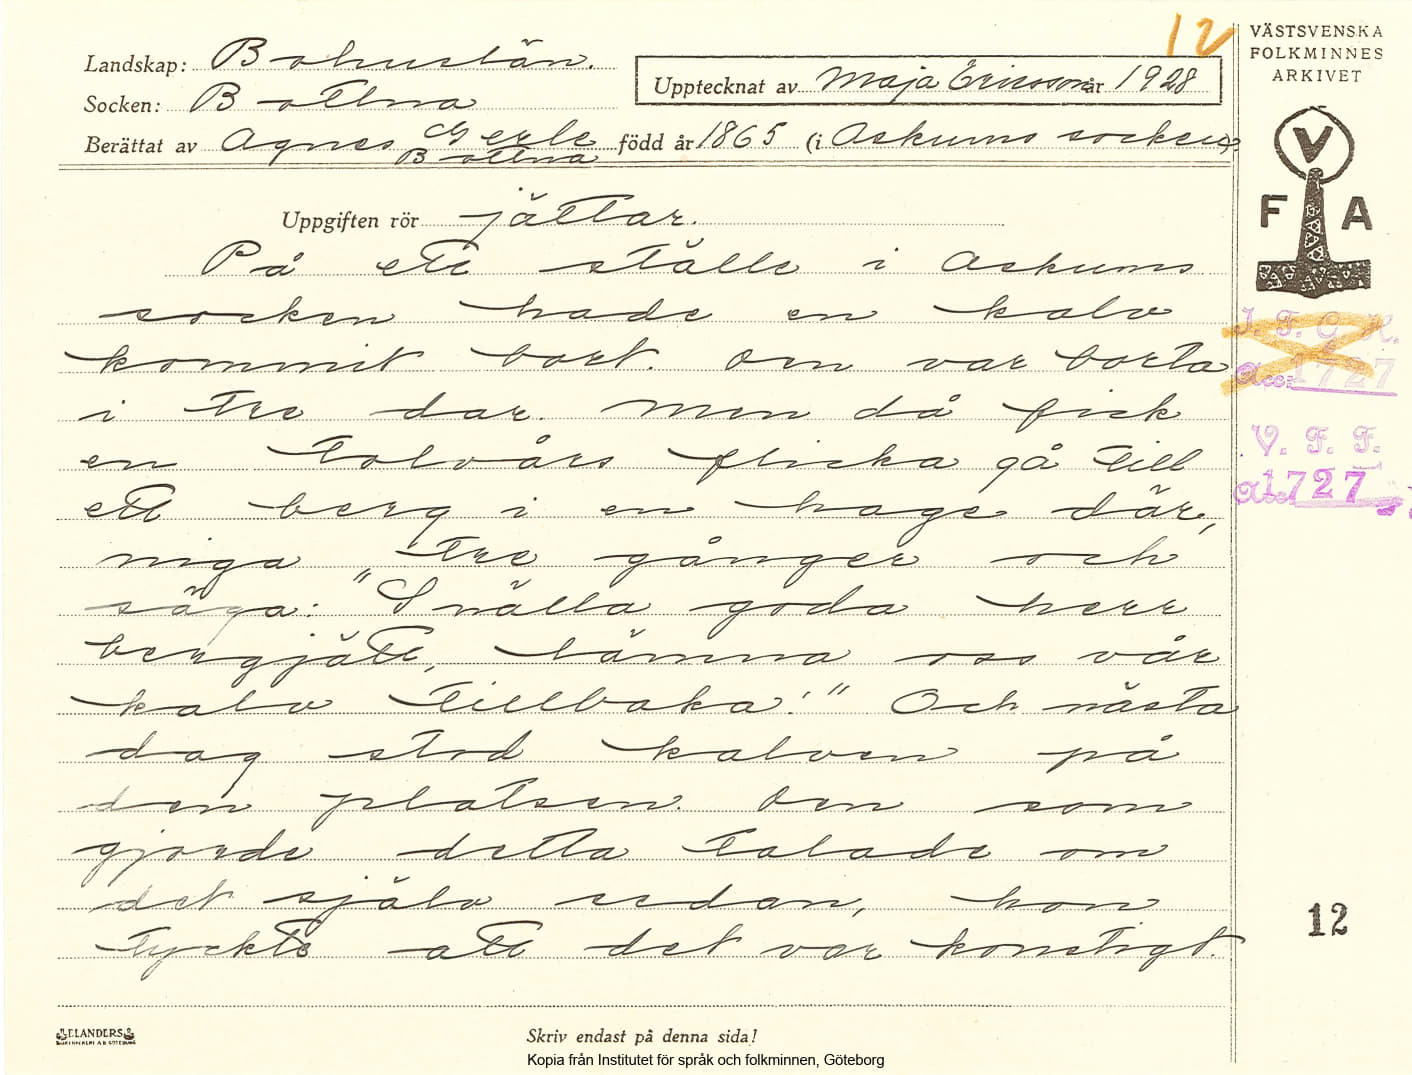 12
VÄSTSVENSKA
FOLKMINNES
ARKIVET
Landskap: Bohuslän.
Upptecknat av Maja Ericsson år 1928
Socken: Bottna
Berättat av Agnes Gerle född år 1865 (i Askums socken)
Bottna
V
F A
Uppgiften rör jättar.
På ett ställe i Askums
socken hade en kalv
kommit bort. Den var borta
i tre dar. Men då fick
en tolvårs flicka gå till
ett berg i en hage där,
niga tre gånger och
säga: "Snälla goda herr
bergjätt, lämna oss vår
kalv tillbaka!" Och nästa
dag stod kalven på
den platsen. Den som
gjorde detta talade om
det själv sedan, hon
tyckte att det var konstigt.
I. F. G. H.
acc: 1727
V. F. F.
acc. 1727
12
ELANDERS
BOKTRYCKERI A.B. GÖTEBORG
Skriv endast på denna sida!
Kopia från Institutet för språk och folkminnen, Göteborg